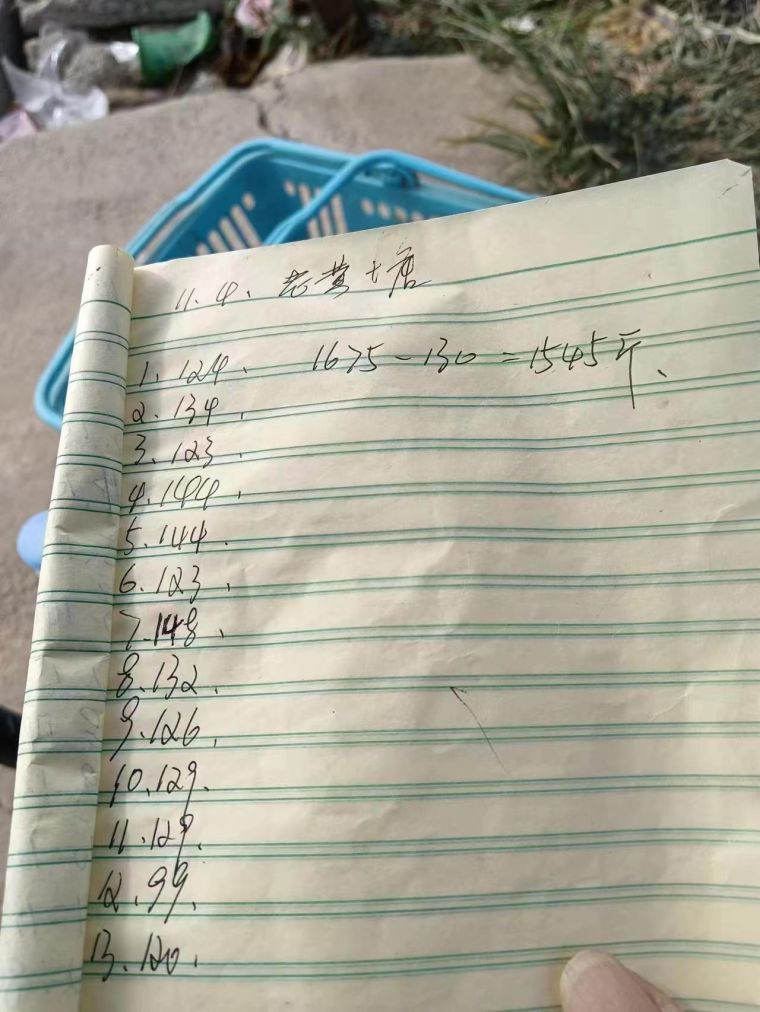 11.4. 老黄
1. 124. 1675-130=1545斤.
2. 134.
3. 123.
4. 144.
5. 144.
6. 123.
7. 148.
8. 132.
9. 126.
10. 129.
11. 129.
12. 99.
13. 120.